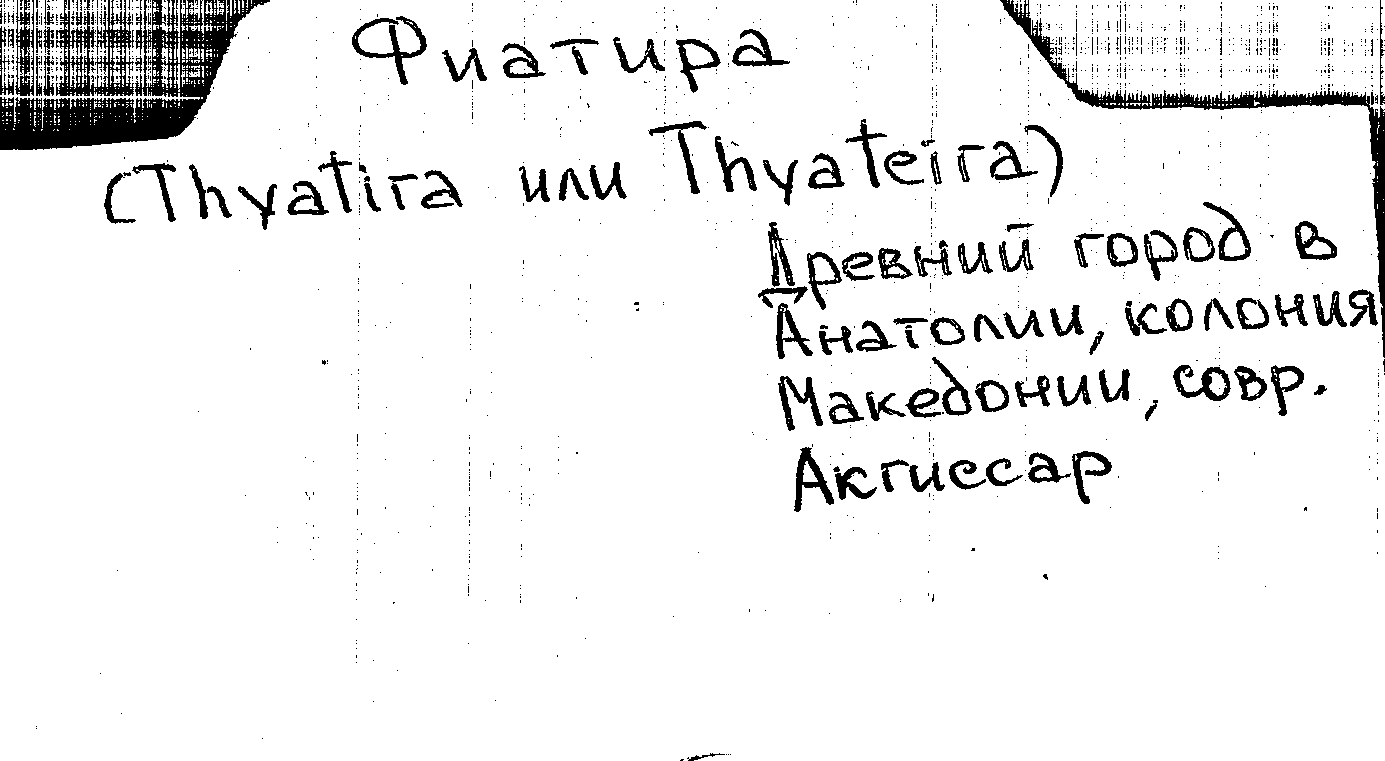 Фиатира
(Thyatira или Thyateira)
Древний город в
Анатолии, колония
Македонии, совр.
Акгиссар